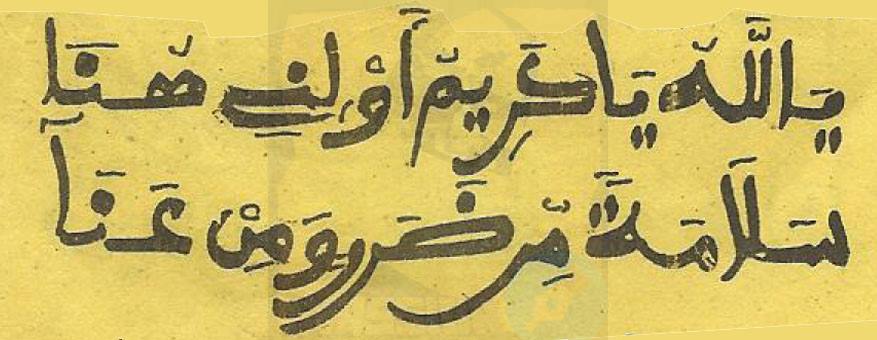 يَاللَّهُ يَا كَرِيمُ أَوْلِنِي هَنَا
سَلَامَةً مِّن ضَرَرٍ وَمِنْ عَنَا